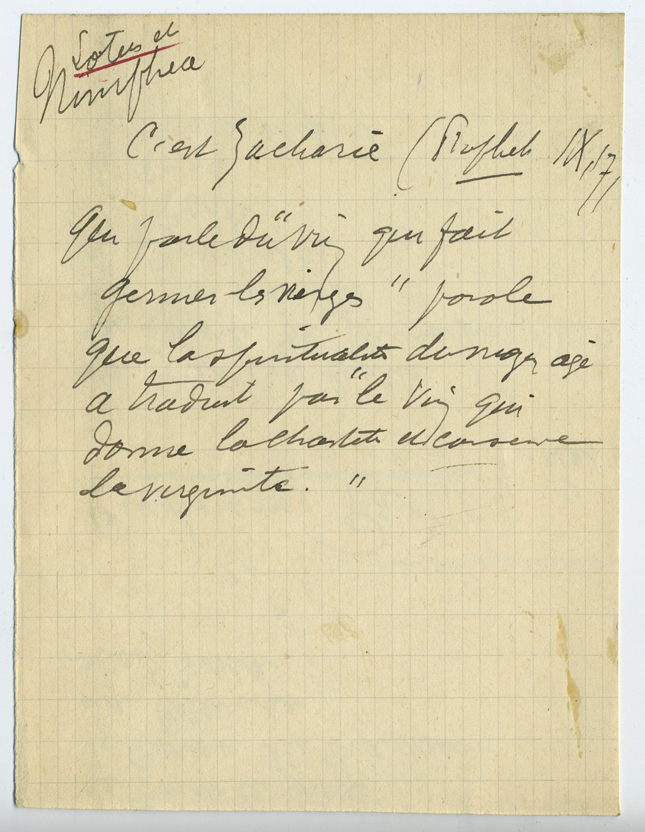 Lotus et
Nimphea
C'est Zacharie (Prophete IX, 17)
qui parle du "vin qui fait
germer les vierges" parole
que la spiritualité du moyen age
a traduit par "le vin qui
donne la chasteté et conserve
la virginité."